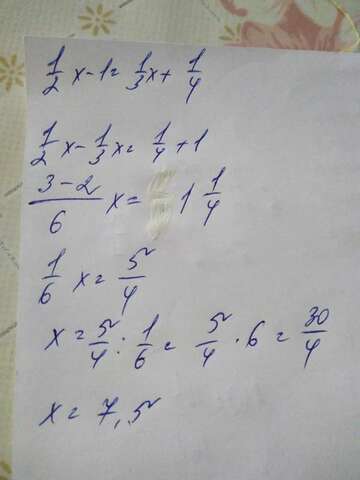 1/2 x - 1 = 1/3 x + 1/4
1/2 x - 1/3 x = 1/4 + 1
(3-2)/6 x = 1 1/4
1/6 x = 5/4
x = 5/4 : 1/6 = 5/4 · 6 = 30/4
x = 7,5